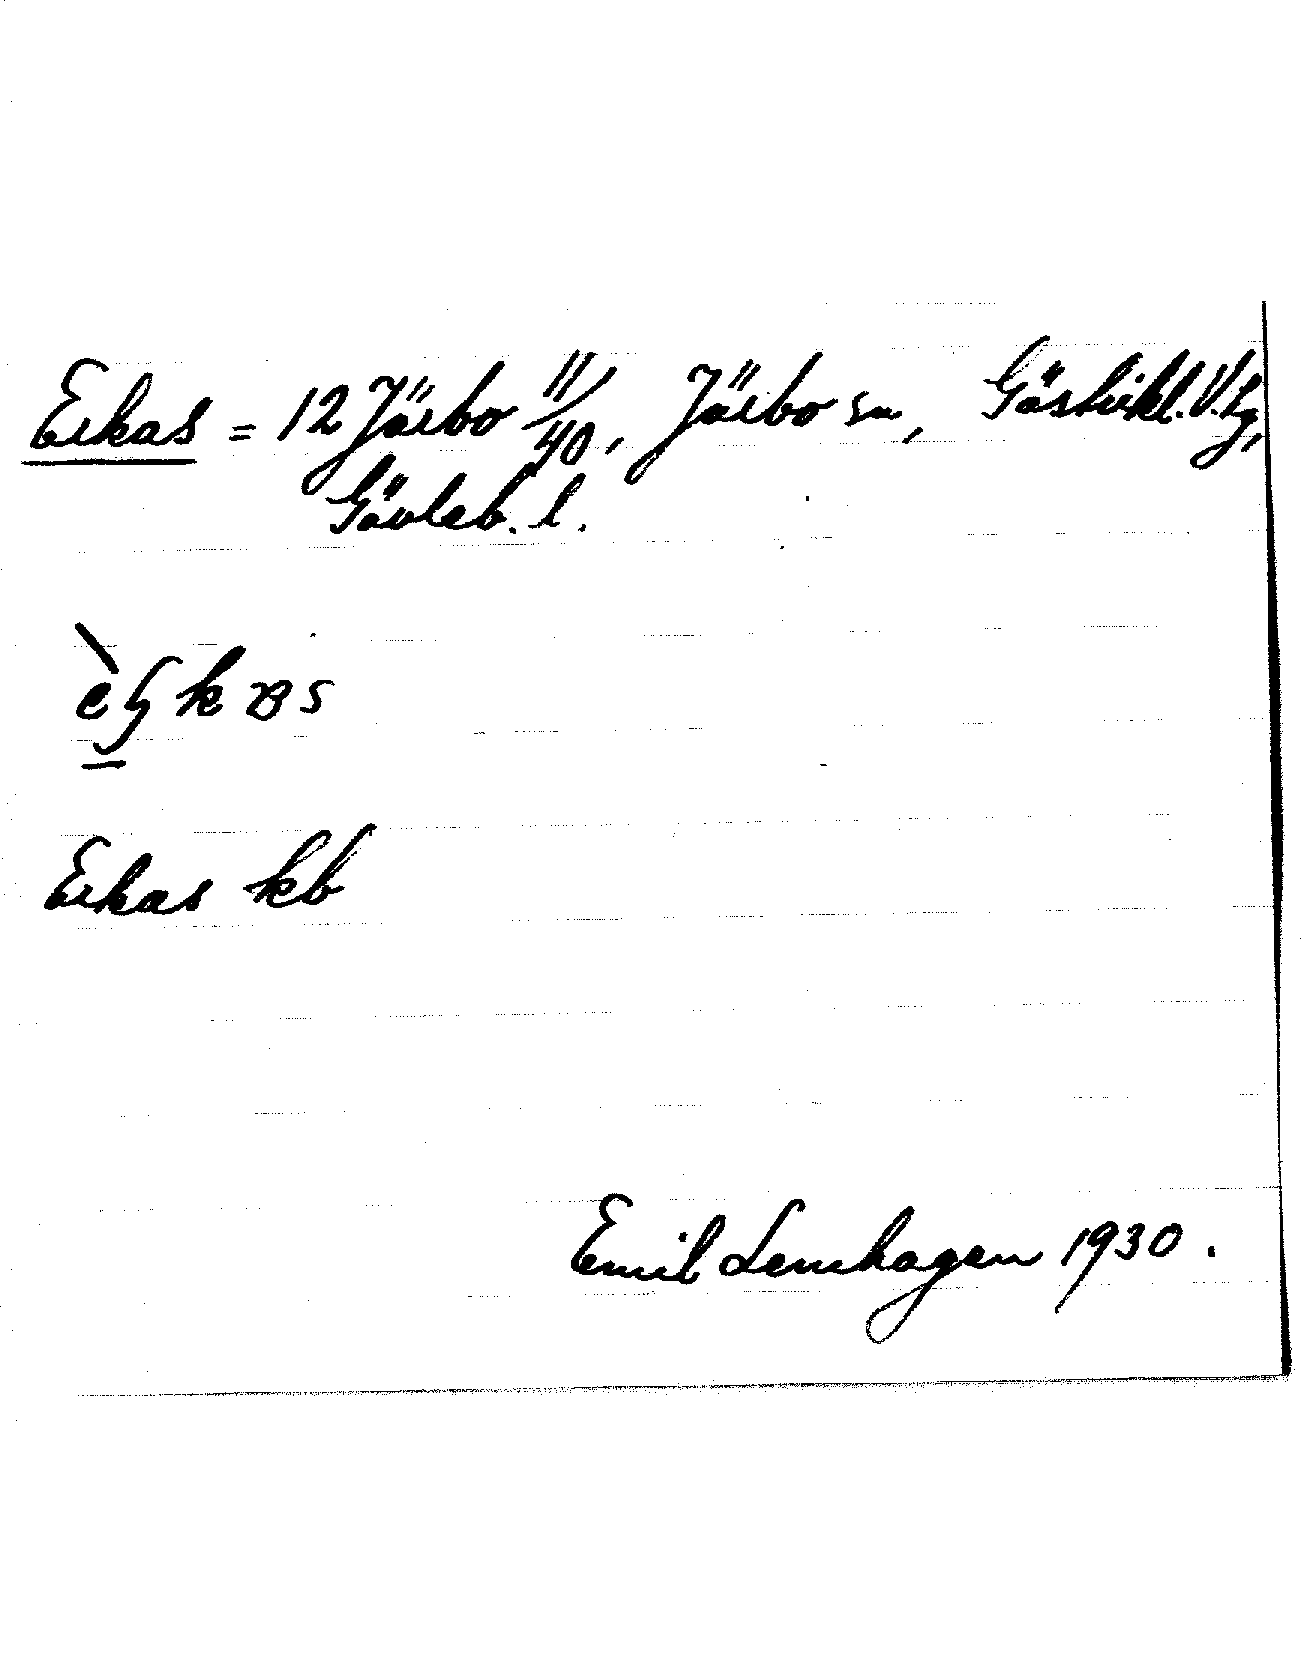 Erkas = 12 Järbo 11/40, Järbo sn, Gästrikl. V. tg,
Gävleb. l.
Erkas kb
Emil Lenhagen 1930.